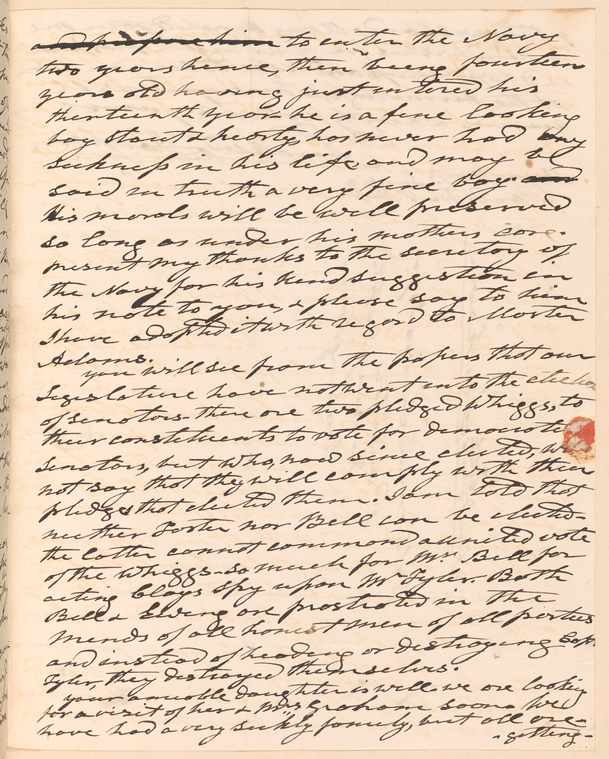 and prepare him to enter the Navy
two years hence, then being fourteen
years old having just entered his
thirteenth year he is a fine looking
boy stout & hearty, has never had any
sickness in his life and may be
said in truth a very fine boy. and
His morals will be will preserved
so long as under his mothers care.
present my thanks to the secretary of
the Navy for his kind suggestion in
his note to you, & please say to him
I have adopted it with regard to Master
Adams.
you will see from the papers that our
Legislature have not went into the election
of senators. there are two pledged Whiggs, to
their constituents to vote for democratic
senators, but who, now since elected, will
not say that they will comply with their
pledge that elected them. I am told that
neither Foster nor Bell can be elected.
the latter cannot command a united vote
of the Whiggs. so much for Mr. Bell for
acting Clays spy upon Mr Tyler. Both
Bell & Ewing are prostrated in the
minds of all honest men of all parties
and instead of heading or destroying Capt.
Tyler, they destroyed themselves.
your amiable daughter is well we are looking
for a visit of her & Mrs Graham soon. We
have had a very sickly family, but all are
- getting -